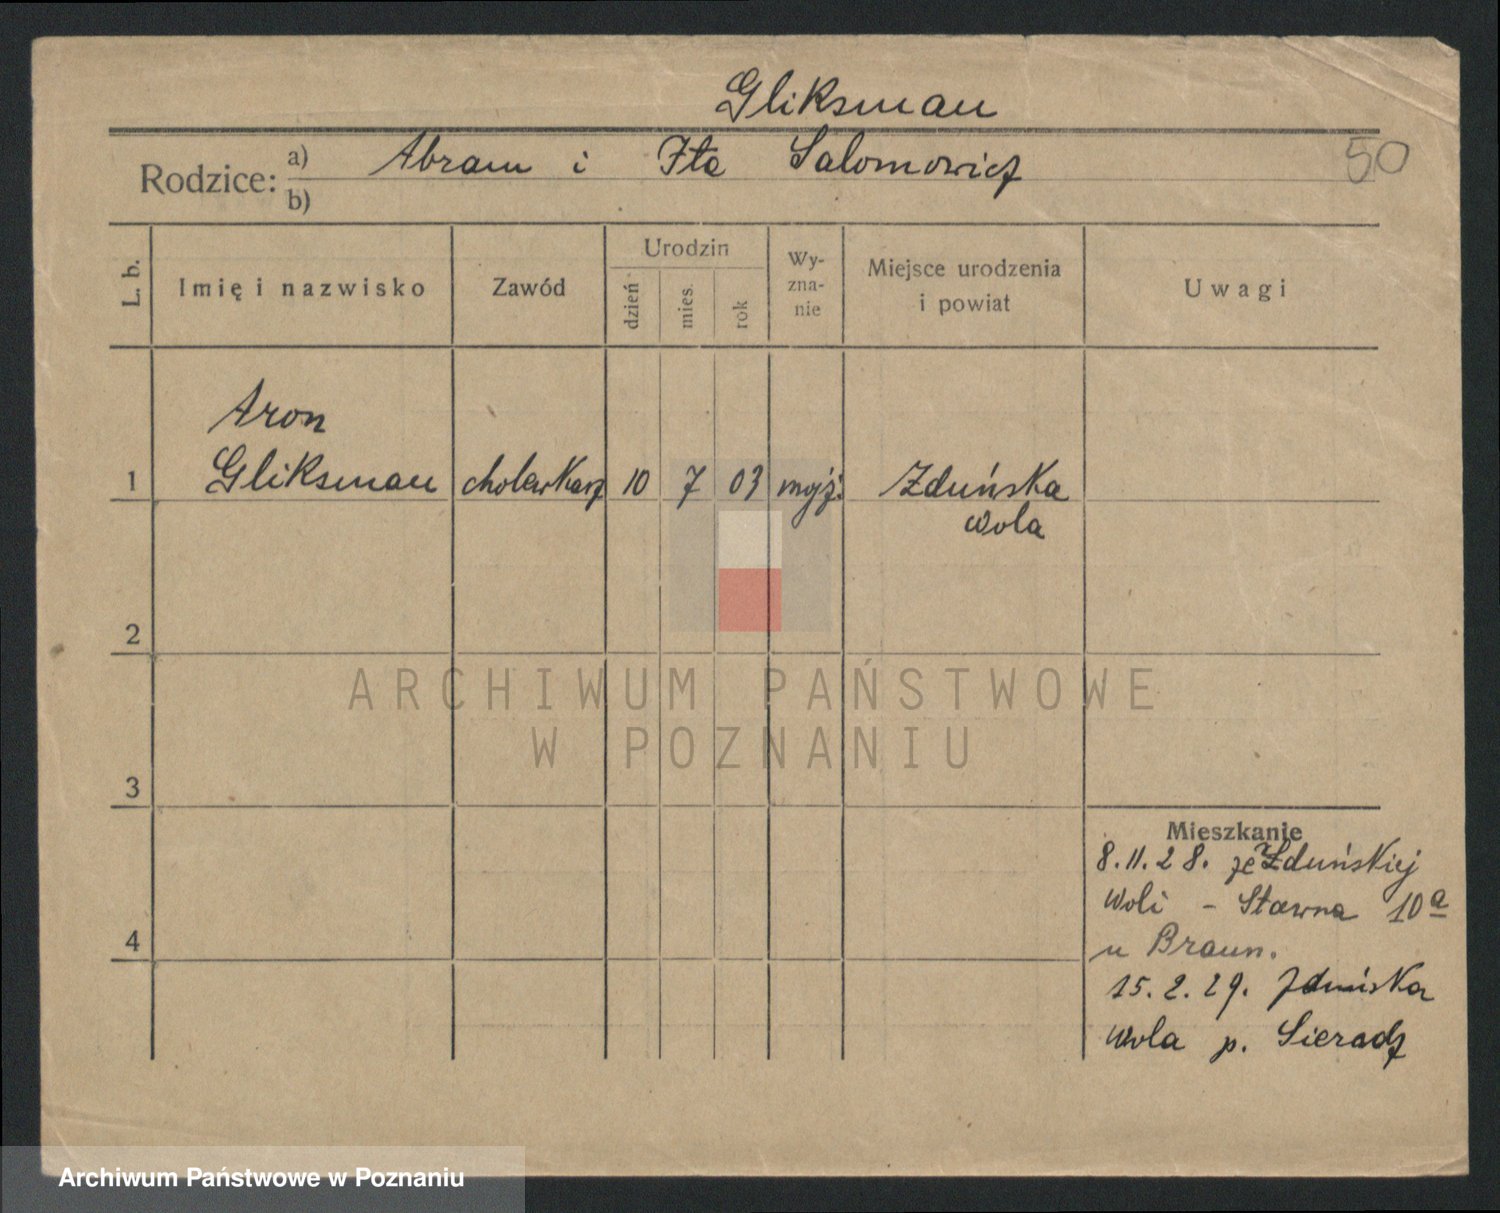 Gliksman
50
Rodzice:
a) Abram i Ita Salomowicz
b)
L. b.
Imię i nazwisko
Zawód
Urodzin
dzień
mies.
rok
Wy-
zna-
nie
Miejsce urodzenia
i powiat
Uwagi
Aron
1 Gliksman cholewkarz 10 7 03 mojż. Zduńska
Wola
2
3
4
Mieszkanie
8.11.28. ze Zduńskiej
Woli - Stawna 10a
u Braun.
15.2.29. Zduńska
Wola p. Sieradz
ARCHIWUM PAŃSTWOWE
W POZNANIU
Archiwum Państwowe w Poznaniu